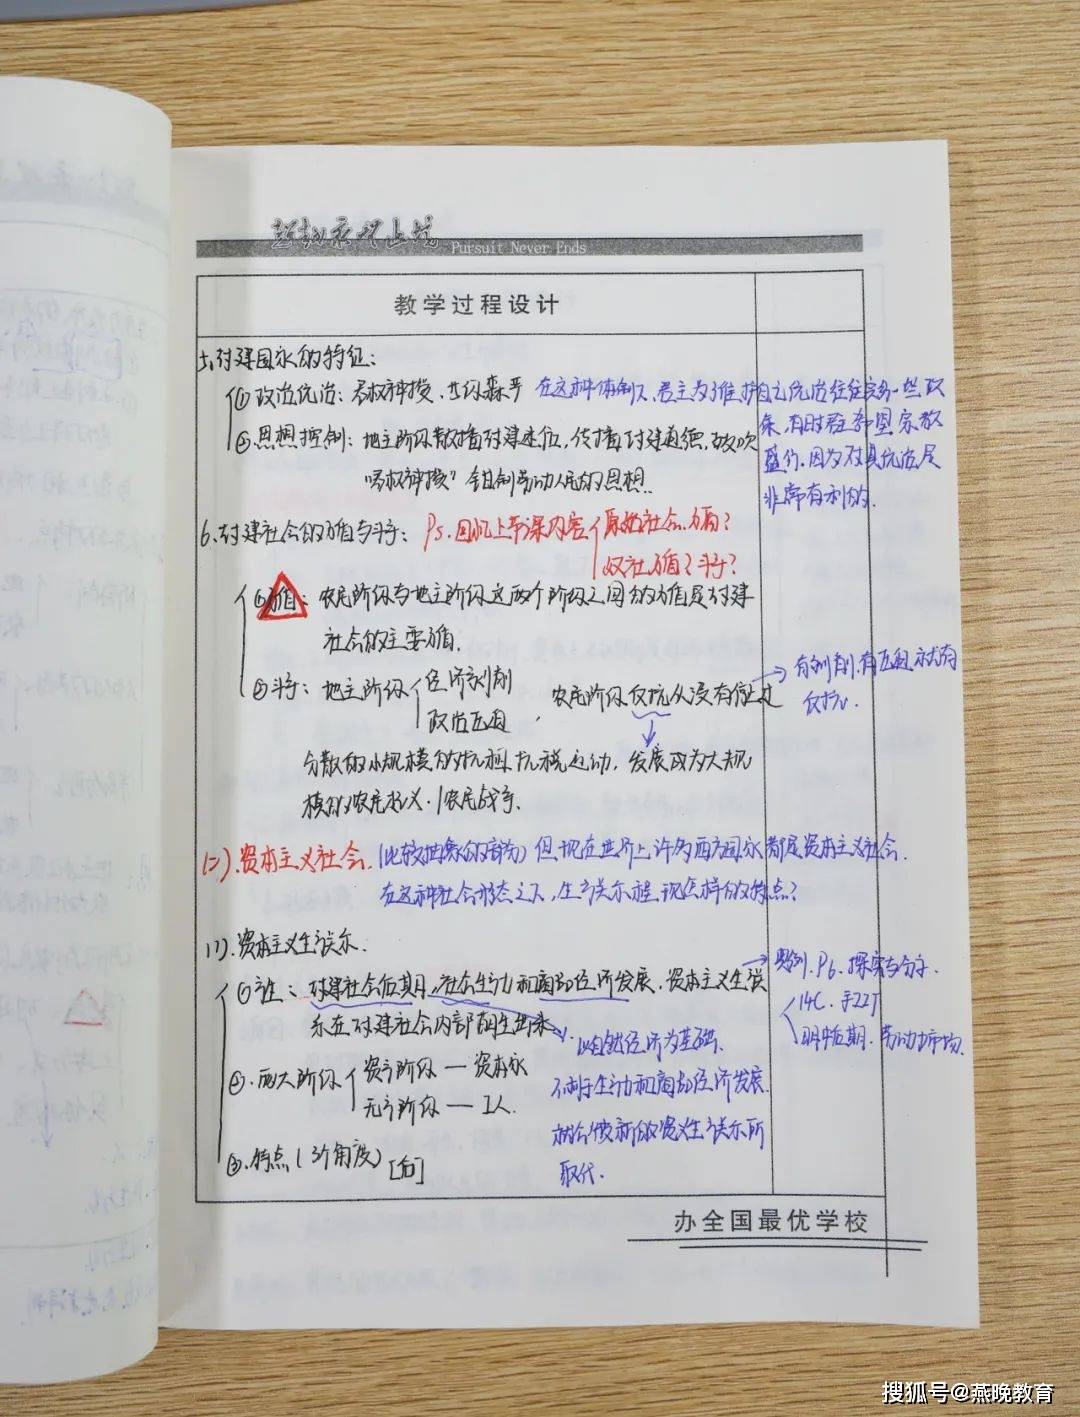 Pursuit Never Ends
教学过程设计
5、封建国家的特征：
① 政治统治：君权神授，等级森严 在这种体制下，君主为了维护自己统治往往实行一些政
策，有时君主希望宗教
盛行，因为对其统治是
非常有利的.
② 思想控制：地主阶级散播封建迷信，传播封建道德，鼓吹
"君权神授" 钳制劳动人民的思想.
6、封建社会的矛盾与斗争： Ps.回忆上节课内容 原始社会.矛盾？
奴社矛盾？斗争？
① 矛盾：农民阶级与地主阶级这两个阶级之间的矛盾是封建
社会的主要矛盾.
② 斗争：地主阶级 经济剥削
政治压迫 ，
农民阶级反抗从没有停止过
→ 有剥削，有压迫，就有
反抗.
分散的小规模的抗租、抗税运动，发展成为大规
模的农民起义、农民战争.
(二).资本主义社会.(比较抽象的部分)但现在世界上许多西方国家都是资本主义社会.
在这种社会形态之下，生产关系呈现怎样的特点？
(1).资本主义生产关系.
①产生：封建社会后期，社会生产力和商品经济发展，资本主义生产关
系在封建社会内部萌生出来
→ 举例.P6.探究与分享.
14C.手工工厂
明中后期.劳动力市场.
以自然经济为基础.
不利于生产力和商品经济发展
就会被新的资义生产关系所
取代.
②.两大阶级 资产阶级 — 资本家
无产阶级 — 工人.
③.特点(3个角度) [后]
办全国最优学校
搜狐号@燕晚教育